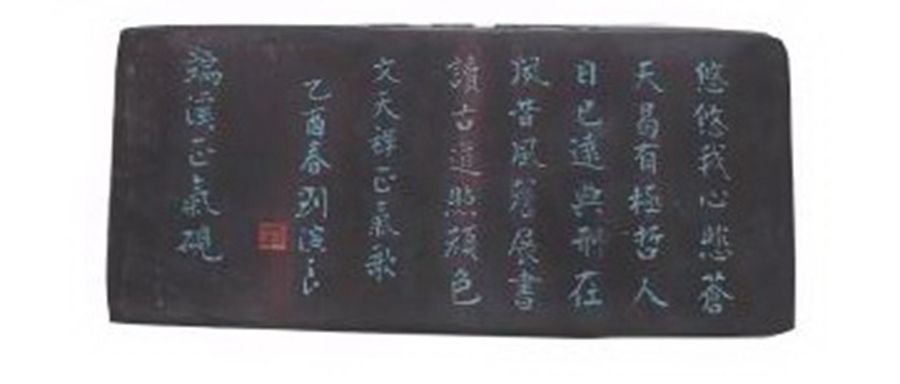 悠悠我心悲蒼
天曷有極哲人
日已遠典刑在
夙昔風簷展書
讀古道照顏色
文天祥正氣歌
乙酉春刘演良
端溪正氣硯